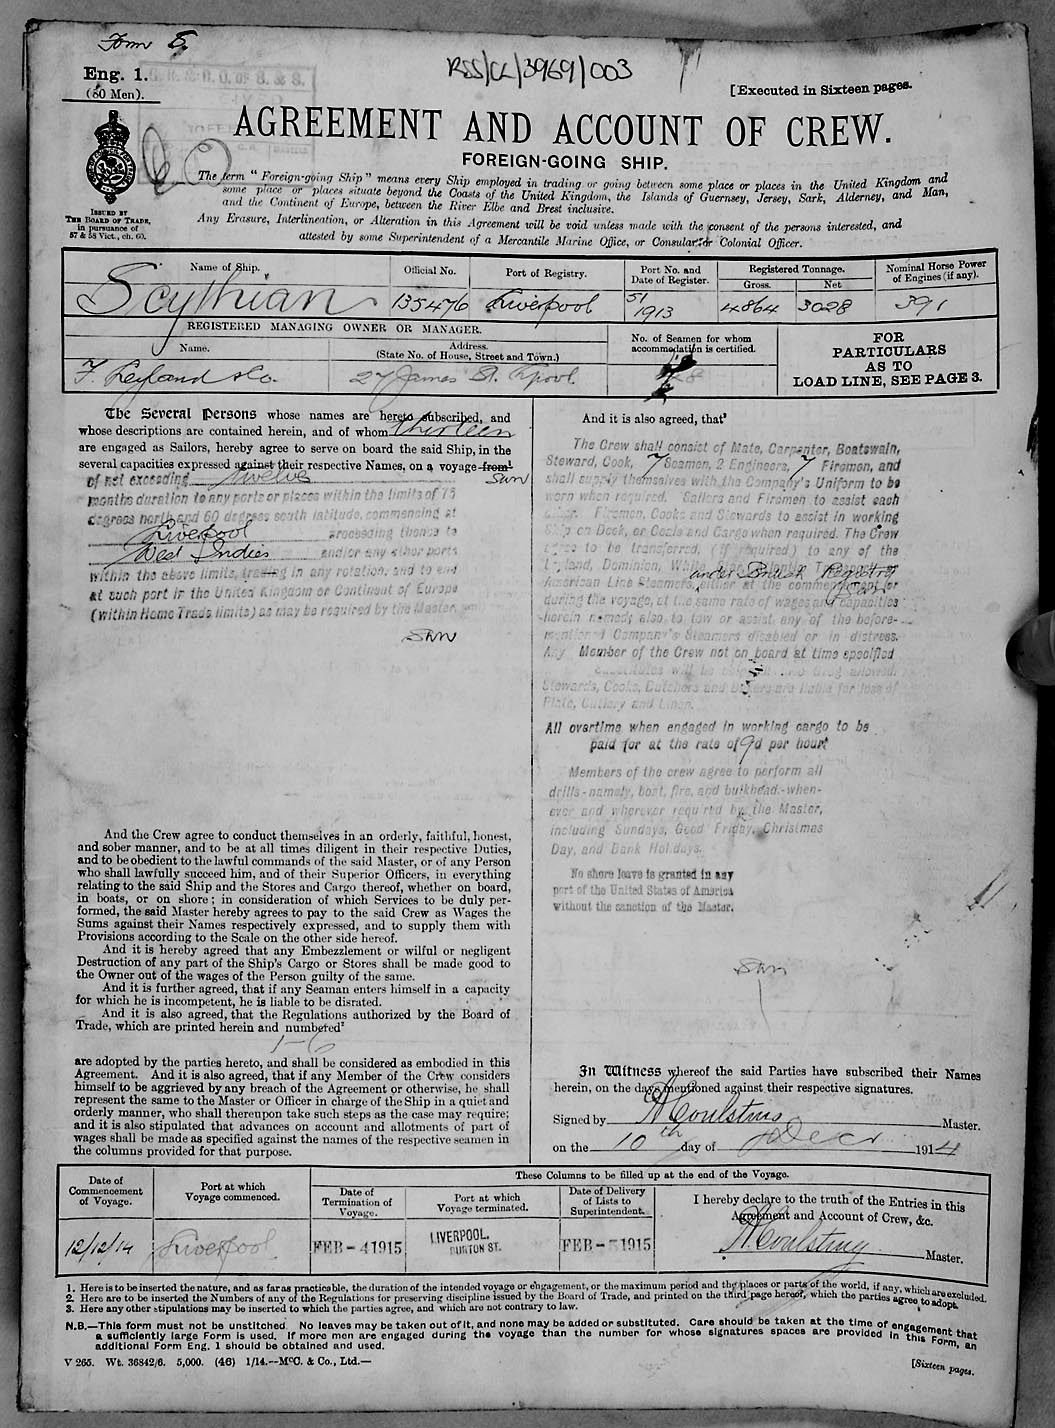 Form E
RSS/CL/3969/003
Eng. 1.
(80 Men).
[Executed in Sixteen pages.
AGREEMENT AND ACCOUNT OF CREW.
FOREIGN-GOING SHIP.
ISSUED BY
THE BOARD OF TRADE,
in pursuance of
57 & 58 Vict., ch. 60.
The term "Foreign-going Ship" means every Ship employed in trading or going between some place or places in the United Kingdom and
some place or places situate beyond the Coasts of the United Kingdom, the Islands of Guernsey, Jersey, Sark, Alderney, and Man,
and the Continent of Europe, between the River Elbe and Brest inclusive.
Any Erasure, Interlineation, or Alteration in this Agreement will be void unless made with the consent of the persons interested, and
attested by some Superintendent of a Mercantile Marine Office, or Consular or Colonial Officer.
Name of Ship.
Official No.
Port of Registry.
Port No. and
Date of Register.
Registered Tonnage.
Gross.
Net
Nominal Horse Power
of Engines (if any).
Scythian
135476
Liverpool
51
1913
4864
3028
391
REGISTERED MANAGING OWNER OR MANAGER.
Name.
Address.
(State No. of House, Street and Town.)
No. of Seamen for whom
accommodation is certified.
FOR
PARTICULARS
AS TO
LOAD LINE, SEE PAGE 3.
F. Leyland & Co.
27 James St. L'pool.
The Several Persons whose names are hereto subscribed, and
whose descriptions are contained herein, and of whom thirteen
are engaged as Sailors, hereby agree to serve on board the said Ship, in the
several capacities expressed against their respective Names, on a voyage from¹
of not exceeding twelve
months duration to any ports or places within the limits of 75
degrees north and 60 degrees south latitude, commencing at
Liverpool proceeding thence to
West Indies and/or any other ports
within the above limits, trading in any rotation, and to end
at such port in the United Kingdom or Continent of Europe
(within Home Trade limits) as may be required by the Master.
And the Crew agree to conduct themselves in an orderly, faithful, honest,
and sober manner, and to be at all times diligent in their respective Duties,
and to be obedient to the lawful commands of the said Master, or of any Person
who shall lawfully succeed him, and of their Superior Officers, in everything
relating to the said Ship and the Stores and Cargo thereof, whether on board,
in boats, or on shore; in consideration of which Services to be duly per-
formed, the said Master hereby agrees to pay to the said Crew as Wages the
Sums against their Names respectively expressed, and to supply them with
Provisions according to the Scale on the other side hereof.
And it is hereby agreed that any Embezzlement or wilful or negligent
Destruction of any part of the Ship's Cargo or Stores shall be made good to
the Owner out of the wages of the Person guilty of the same.
And it is further agreed, that if any Seaman enters himself in a capacity
for which he is incompetent, he is liable to be disrated.
And it is also agreed, that the Regulations authorized by the Board of
Trade, which are printed herein and numbered²
1-6
are adopted by the parties hereto, and shall be considered as embodied in this
Agreement. And it is also agreed, that if any Member of the Crew considers
himself to be aggrieved by any breach of the Agreement or otherwise, he shall
represent the same to the Master or Officer in charge of the Ship in a quiet and
orderly manner, who shall thereupon take such steps as the case may require;
and it is also stipulated that advances on account and allotments of part of
wages shall be made as specified against the names of the respective seamen in
the columns provided for that purpose.
And it is also agreed, that³
The Crew shall consist of Mate, Carpenter, Boatswain,
Steward, Cook, 7 Seamen, 2 Engineers, 7 Firemen, and
shall supply themselves with the Company's Uniform to be
worn when required. Sailors and Firemen to assist each
other. Firemen, Cooks and Stewards to assist in working
Ship on Deck, or Coals and Cargo when required. The Crew
agree to be transferred, (if required) to any of the
Leyland, Dominion, White
under British Registry
American Line Steamers, either at the commencement or
during the voyage, at the same rate of wages and capacities
herein named; also to tow or assist any of the before-
mentioned Company's Steamers disabled or in distress.
Any Member of the Crew not on board at time specified
Substitutes will be
Stewards, Cooks, Butchers and Bakers are liable for loss of
Plate, Cutlery and Linen.
All overtime when engaged in working cargo to be
paid for at the rate of 9d per hour.
Members of the crew agree to perform all
drills-namely, boat, fire, and bulkhead-when-
ever and wherever required by the Master,
including Sundays, Good Friday, Christmas
Day, and Bank Holidays.
No shore leave is granted in any
port of the United States of America
without the sanction of the Master.
In Witness whereof the said Parties have subscribed their Names
herein, on the day mentioned against their respective signatures.
Signed by A Coulsting Master.
on the 10th day of Decr 1914
Date of
Commencement
of Voyage.
Port at which
Voyage commenced.
These Columns to be filled up at the end of the Voyage.
Date of
Termination of
Voyage.
Port at which
Voyage terminated.
Date of Delivery
of Lists to
Superintendent.
I hereby declare to the truth of the Entries in this
Agreement and Account of Crew, &c.
12/12/14
Liverpool
FEB-4 1915
LIVERPOOL.
BURTON ST.
FEB-5 1915
A Coulsting Master.
1. Here is to be inserted the nature, and as far as practicable, the duration of the intended voyage or engagement, or the maximum period and the places or parts of the world, if any, which are excluded.
2. Here are to be inserted the Numbers of any of the Regulations for preserving discipline issued by the Board of Trade, and printed on the third page hereof, which the parties agree to adopt.
3. Here any other stipulations may be inserted to which the parties agree, and which are not contrary to law.
N.B.—This form must not be unstitched. No leaves may be taken out of it, and none may be added or substituted. Care should be taken at the time of engagement that
a sufficiently large Form is used. If more men are engaged during the voyage than the number for whose signatures spaces are provided in this Form, an
additional Form Eng. 1 should be obtained and used.
V 265. Wt. 36842/6. 5,000. (46) 1/14.--McC. & Co., Ltd.—
[Sixteen pages.